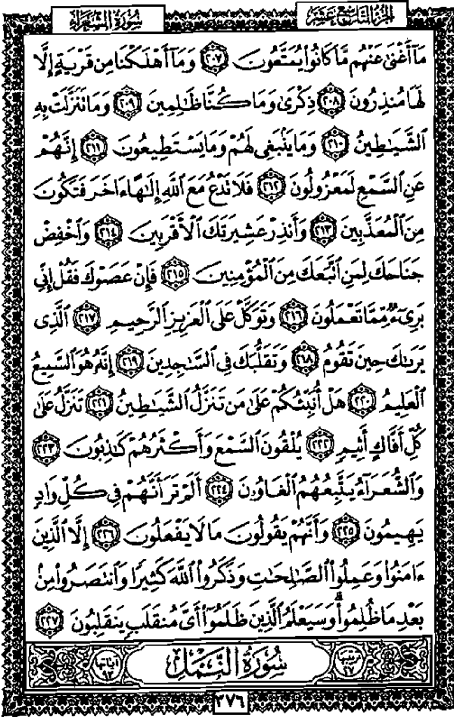 الجزء التاسع عشر
سورة الشعراء
مَآ أَغْنَىٰ عَنْهُم مَّا كَانُوا۟ يُمَتَّعُونَ ﴿٢٠٧﴾ وَمَآ أَهْلَكْنَا مِن قَرْيَةٍ إِلَّا
لَهَا مُنذِرُونَ ﴿٢٠٨﴾ ذِكْرَىٰ وَمَا كُنَّا ظَٰلِمِينَ ﴿٢٠٩﴾ وَمَا نَنَزَّلَتْ بِهِ
ٱلشَّيَٰطِينُ ﴿٢١٠﴾ وَمَا يَنۢبَغِى لَهُمْ وَمَا يَسْتَطِيعُونَ ﴿٢١١﴾ إِنَّهُمْ
عَنِ ٱلسَّمْعِ لَمَعْزُولُونَ ﴿٢١٢﴾ فَلَا تَدْعُ مَعَ ٱللَّهِ إِلَٰهًا ءَاخَرَ فَتَكُونَ
مِنَ ٱلْمُعَذَّبِينَ ﴿٢١٣﴾ وَأَنذِرْ عَشِيرَتَكَ ٱلْأَقْرَبِينَ ﴿٢١٤﴾ وَٱخْفِضْ
جَنَاحَكَ لِمَنِ ٱتَّبَعَكَ مِنَ ٱلْمُؤْمِنِينَ ﴿٢١٥﴾ فَإِنْ عَصَوْكَ فَقُلْ إِنِّى
بَرِىٓءٌ مِّمَّا تَعْمَلُونَ ﴿٢١٦﴾ وَتَوَكَّلْ عَلَى ٱلْعَزِيزِ ٱلرَّحِيمِ ﴿٢١٧﴾ ٱلَّذِى
يَرَىٰكَ حِينَ تَقُومُ ﴿٢١٨﴾ وَتَقَلُّبَكَ فِى ٱلسَّٰجِدِينَ ﴿٢١٩﴾ إِنَّهُۥ هُوَ ٱلسَّمِيعُ
ٱلْعَلِيمُ ﴿٢٢٠﴾ هَلْ أُنَبِّئُكُمْ عَلَىٰ مَن تَنَزَّلُ ٱلشَّيَٰطِينُ ﴿٢٢١﴾ تَنَزَّلُ عَلَىٰ
كُلِّ أَفَّاكٍ أَثِيمٍ ﴿٢٢٢﴾ يُلْقُونَ ٱلسَّمْعَ وَأَكْثَرُهُمْ كَٰذِبُونَ ﴿٢٢٣﴾
وَٱلشُّعَرَآءُ يَتَّبِعُهُمُ ٱلْغَاوُۥنَ ﴿٢٢٤﴾ أَلَمْ تَرَ أَنَّهُمْ فِى كُلِّ وَادٍ
يَهِيمُونَ ﴿٢٢٥﴾ وَأَنَّهُمْ يَقُولُونَ مَا لَا يَفْعَلُونَ ﴿٢٢٦﴾ إِلَّا ٱلَّذِينَ
ءَامَنُوا۟ وَعَمِلُوا۟ ٱلصَّٰلِحَٰتِ وَذَكَرُوا۟ ٱللَّهَ كَثِيرًا وَٱنتَصَرُوا۟ مِنۢ
بَعْدِ مَا ظُلِمُوا۟ ۗ وَسَيَعْلَمُ ٱلَّذِينَ ظَلَمُوٓا۟ أَىَّ مُنقَلَبٍ يَنقَلِبُونَ ﴿٢٢٧﴾
ترتيبها ٢٧
سُورَةُ النَّمْلِ
آياتها ٩٣
٣٧٦